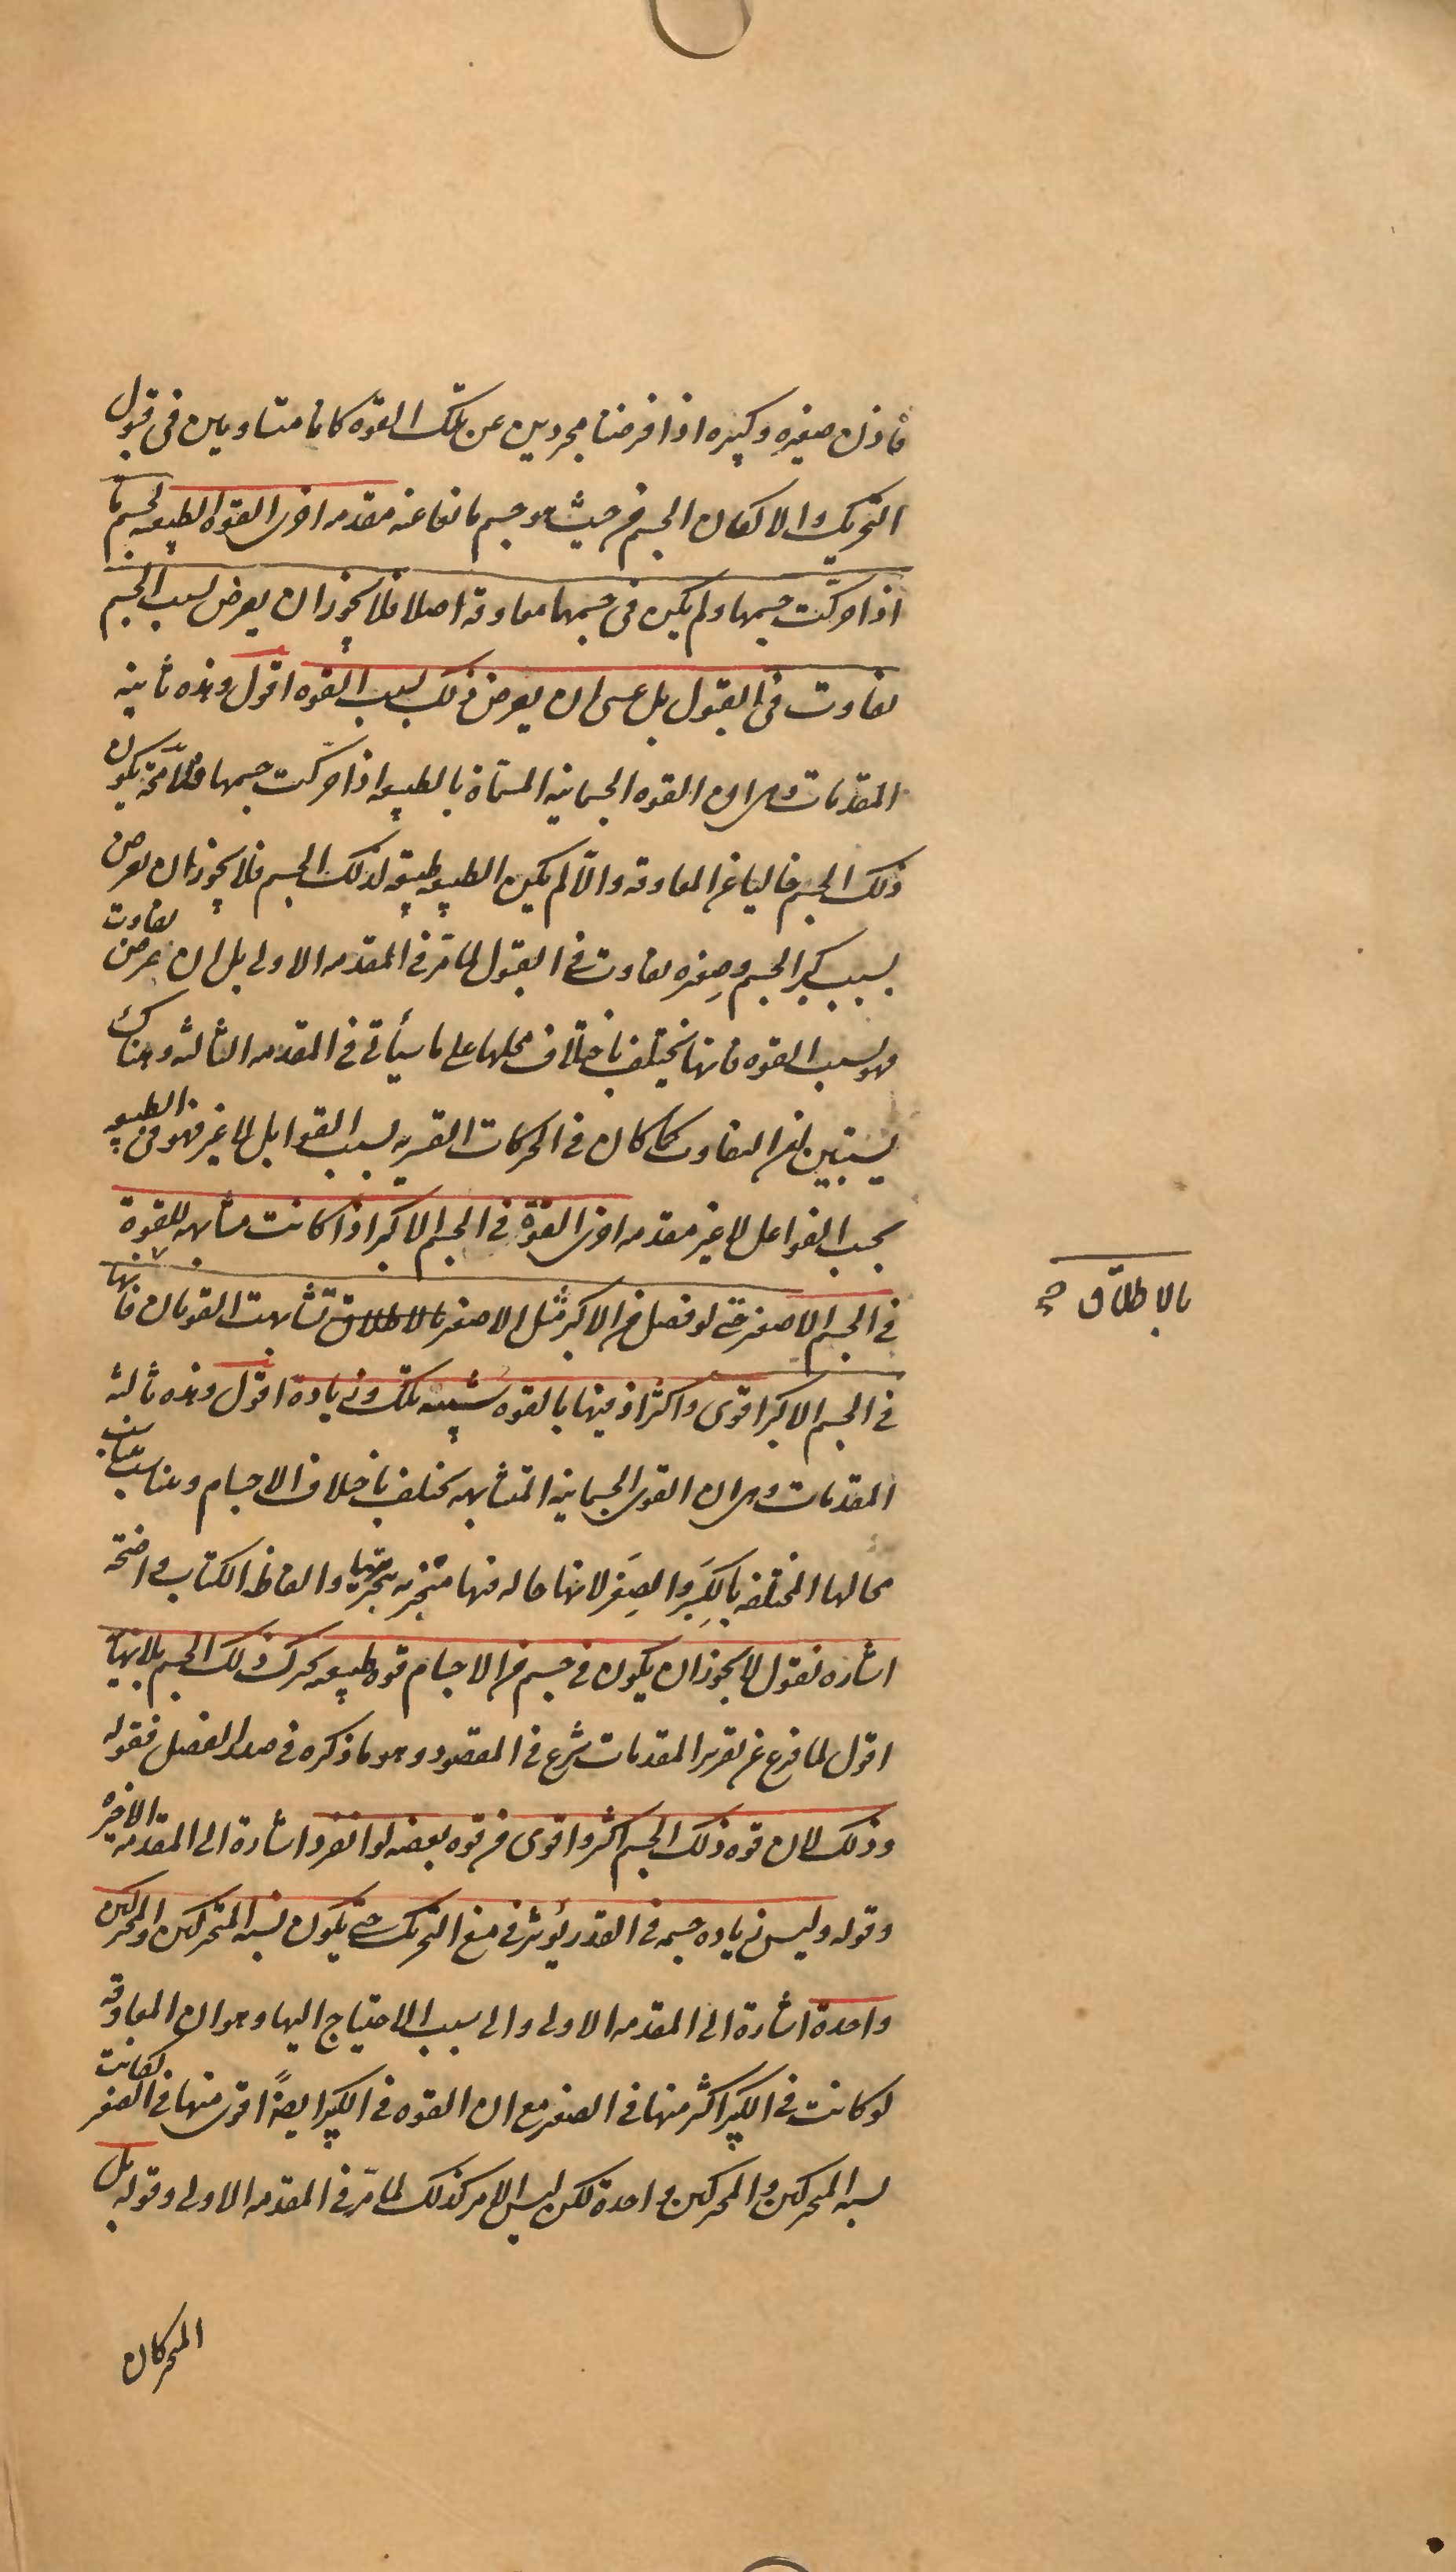 فاذن صغيره وكبيره اذا فرضنا مجردين عن تلك القوه كانا متساويين فى قبول
التحريك والا لكان الجسم من حيث هو جسم مانعا عنه مقدمه اخرى القوه الطبيعيه لجسم ما
اذا حركت جسمها ولم يكن فى جسمها معاوقه اصلا فلا يجوز ان يعرض لسبب الجسم
تفاوت فى القبول بل عسى ان يعرض ذلك لسبب القوه اقول وهذه ثانيه
المقدمات وهى ان القوه الجسمانيه المسماة بالطبيعه اذا حركت جسمها فلا محة يكون
ذلك الجسم خاليا عن المعاوقه والا لم يكن الطبيعه طبيعة لذلك الجسم فلا يجوز ان يعرض
بسبب كبر الجسم وصغره تفاوت فى القبول لما مر فى المقدمه الاولى بل ان عرض تفاوت
فهو لسبب القوه فانها تختلف باختلاف محلها على ما سيأتى فى المقدمه الثالثه وهناك
يستبين ان التفاوت كما كان فى الحركات القسريه بسبب القوابل لا غير فهو فى الطبيعيه
بحسب الفواعل لا غير مقدمه اخرى القوة فى الجسم الاكبر اذا كانت مشابهه للقوة
فى الجسم الاصغر حتى لو فصل من الاكبر مثل الاصغر بالاطلاق تشابهت القوتان فانها
بالاطلاق صح
فى الجسم الاكبر اقوى واكثر اذ فيها بالقوه شبيهه تلك وزيادة اقول وهذه ثالثه
المقدمات وهى ان القوى الجسمانيه المتشابهه تختلف باختلاف الاجسام وتناسب بتناسب
محالها المختلفه بالكِبَر والصِغَر لانها حاله فيها متجزيه بتجزيها والفاظ الكتاب واضحة
اشاره نقول لا يجوز ان يكون فى جسم من الاجسام قوه طبيعيه تحرك ذلك الجسم بلا نهاية
اقول لما فرغ عن تقرير المقدمات شرع فى المقصود وهو ما ذكره فى صدر الفصل فقوله
وذلك لان قوه ذلك الجسم اكثر واقوى من قوه بعضه لو انفرد اشارة الى المقدمه الاخيره
وقوله وليس زياده جسمه فى القدر يؤثر فى منع التحريك حتى يكون نسبه المتحركين والمحركين
واحدة اشارة الى المقدمه الاولى والى سبب الاحتياج اليها وهو ان المعاوقه
لو كانت فى الكبير اكثر منها فى الصغير مع ان القوه فى الكبير ايضاً اقوى منها فى الصغير لكانت
نسبه المتحركين والمحركين واحدة لكن ليس الامر كذلك لما مر فى المقدمه الاولى وقوله بل
المتحركان